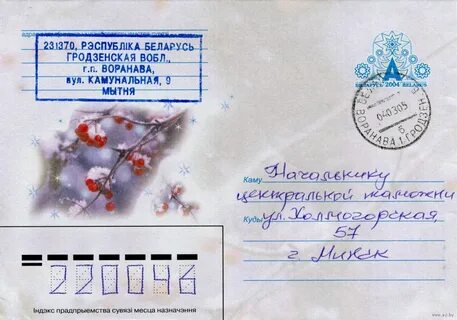 231370, РЭСПУБЛІКА БЕЛАРУСЬ
ГРОДЗЕНСКАЯ ВОБЛ.,
г.п. ВОРАНАВА,
вул. КАМУНАЛЬНАЯ, 9
МЫТНЯ
А
БЕЛАРУСЬ 2004 BELARUS
040305
ВОРАНАВА 1 ГРОДЗЕН
б
Каму Начальнику
центральной таможни
Куды ул. Холмогорская,
57
г. Минск
220046
Індэкс прадпрыемства сувязі месца назначэння